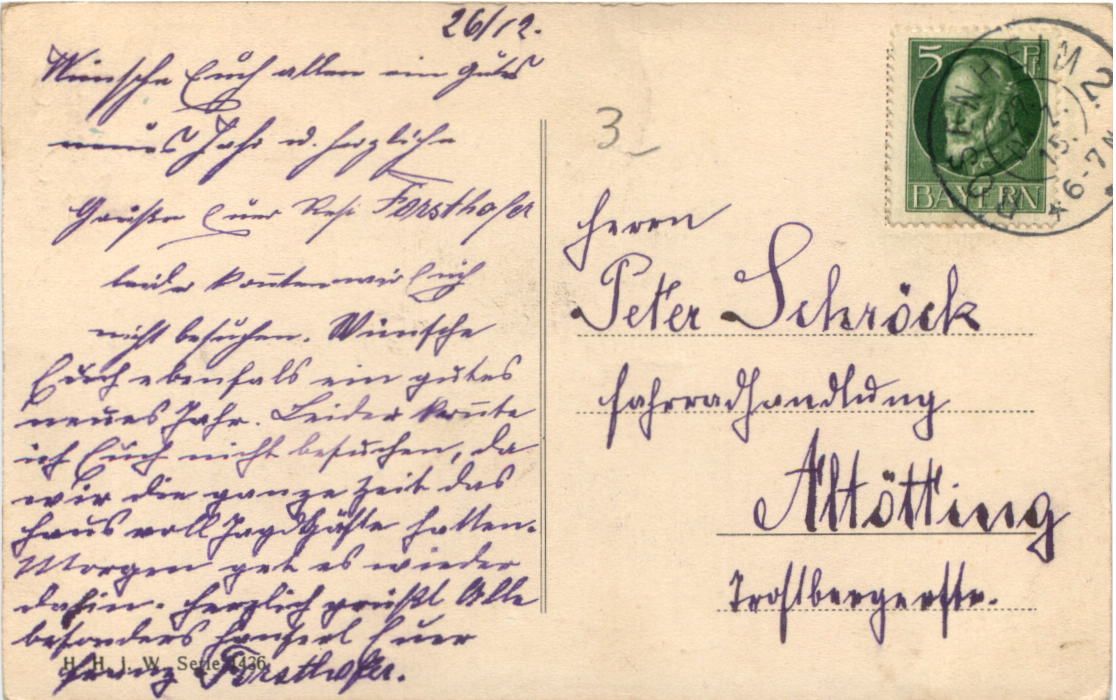 26/12.
Wünsche Euch allen ein gutes
neues Jahr u. herzliche
Grüße Eure Resi Forsthofer
leider konnten wir Euch
nicht besuchen. Wünsche
Euch ebenfals ein gutes
neues Jahr. Leider konnte
ich Euch nicht besuchen, da
wir die ganze Zeit das
Haus voll Jagdgäste hatten.
Morgen get es wieder
dahin. Herzlich grüßt Alle
besonders Hanserl Euer
Franz Forsthofer.
H. H. i. W. Serie 1436
3
5 Pf
BAYERN
ROSENHEIM 2.
15.
6-7 N
Herrn
Peter Schröck
Fahrradhandlung
Altötting
Trostbergerstr.